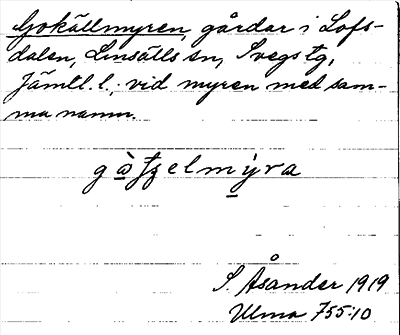 Gokällmyren, gårdar i Lofs-
dalen, Linsälls sn, Svegs tg,
Jämtl. l., vid myren med sam-
ma namn.
S. Åsander 1919
Ulma 755:10